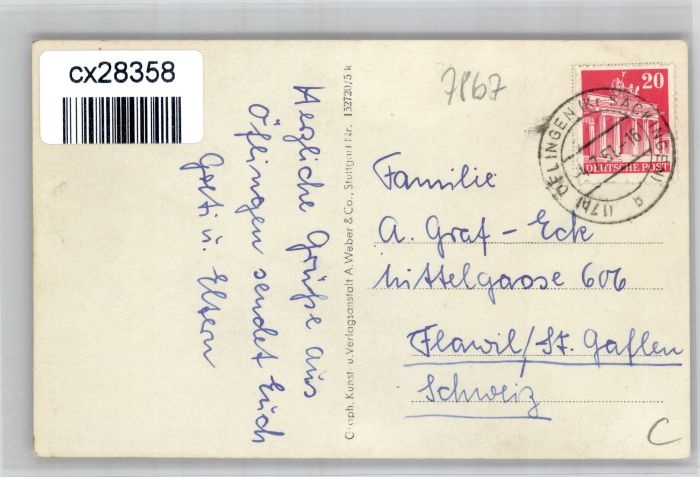 cx28358
Herzliche Grüße aus
Öflingen sendet Euch
Goti u. Eltern
Graph. Kunst- u. Verlagsanstalt A. Weber & Co., Stuttgart Nr. 152720/5 k
7867
20
DEUTSCHE POST
(17b) ÖFLINGEN (Kr. SÄCKINGEN)
a
Familie
A. Graf - Eck
Mittelgasse 606
Flawil/St. Gallen
Schweiz
C